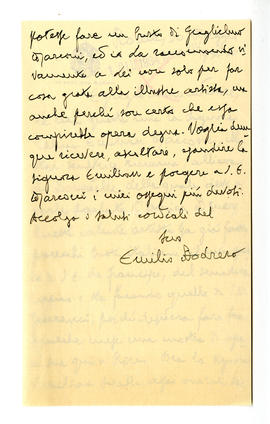 potesse fare un busto di Guglielmo
Marconi, ed io la raccomando vi
vamente a Lei non solo per far
cosa grata alla illustre artista, ma
anche perché son certo che essa
compirebbe opera degna. Voglia dun
que ricevere, ascoltare, esaudire la
signora e porgere a S. E.
Marconi i miei ossequi più devoti.
Accolga i saluti cordiali del
Suo
Emilio Bodrero